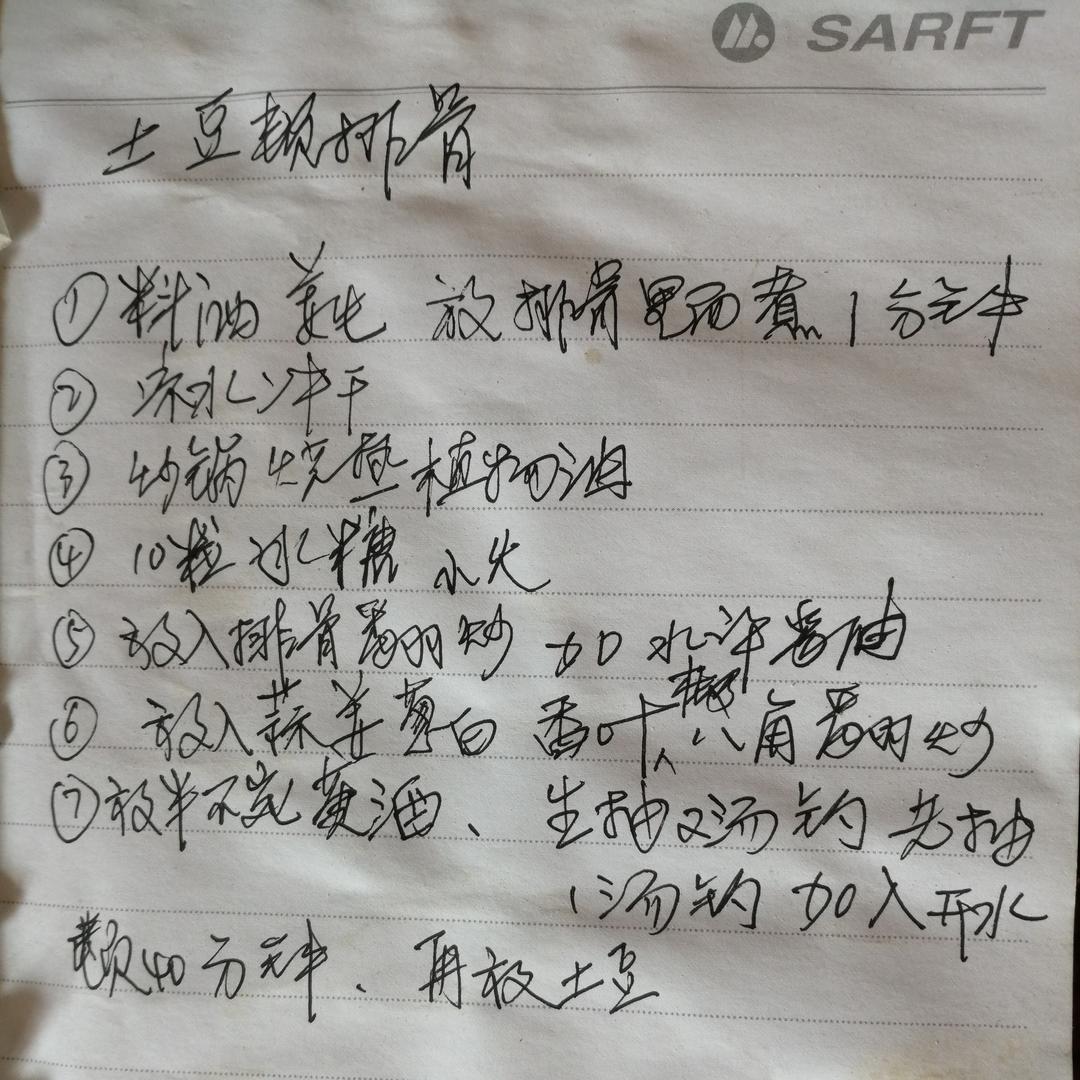 SARFT
土豆顿排骨
①料酒 姜 放排骨里面煮1分钟
② 凉水冲干
③ 炒锅烧热植物油
④ 10粒冰糖 小火
⑤ 放入排骨翻炒 加水 酱油
⑥ 放入蒜姜葱白 香叶 八角翻炒
⑦放半 黄酒、 生抽2汤钓 老抽
1汤钓 加入开水
顿40分钟、再放土豆